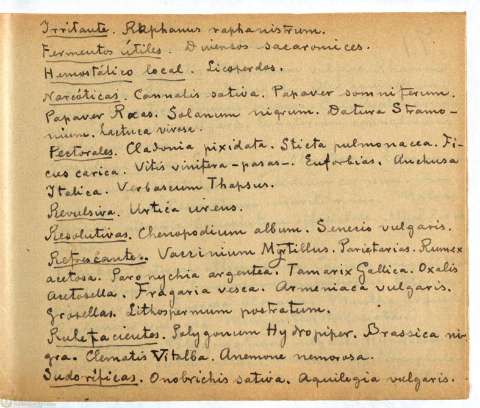 Irritante. Raphanus raphanistrum.
Fermentos útiles. Diversos sacaromices.
Hemostático local. Licoperdos.
Narcóticas. Cannabis sativa. Papaver somniferum.
Papaver Rxas. Solanum nigrum. Datura Stramo-
nium. Lactuca virose.
Pectorales. Cladonia pixidata. Sticta pulmonacea. Fi-
cus carica. Vitis vinifera - pasas -. Euforbias. Anchusa
Italica. Verbascum Thapsus.
Revulsiva. Urtica urens.
Resolutivas. Chenopodium album. Senecio vulgaris.
Refrescantes. Vaccinium Myrtillus. Parietarias. Rumex
acetosa. Paronychia argentea. Tamarix Gallica. Oxalis
Acetosella. Fragaria vesca. Armeniaca vulgaris.
Grosellas. Lithospermum postratum.
Rubefacientes. Polygonum Hydropiper. Brassica ni-
gra. Clematis Vitalba. Anemone nemorosa.
Sudoríficas. Onobrichis sativa. Aquilegia vulgaris.